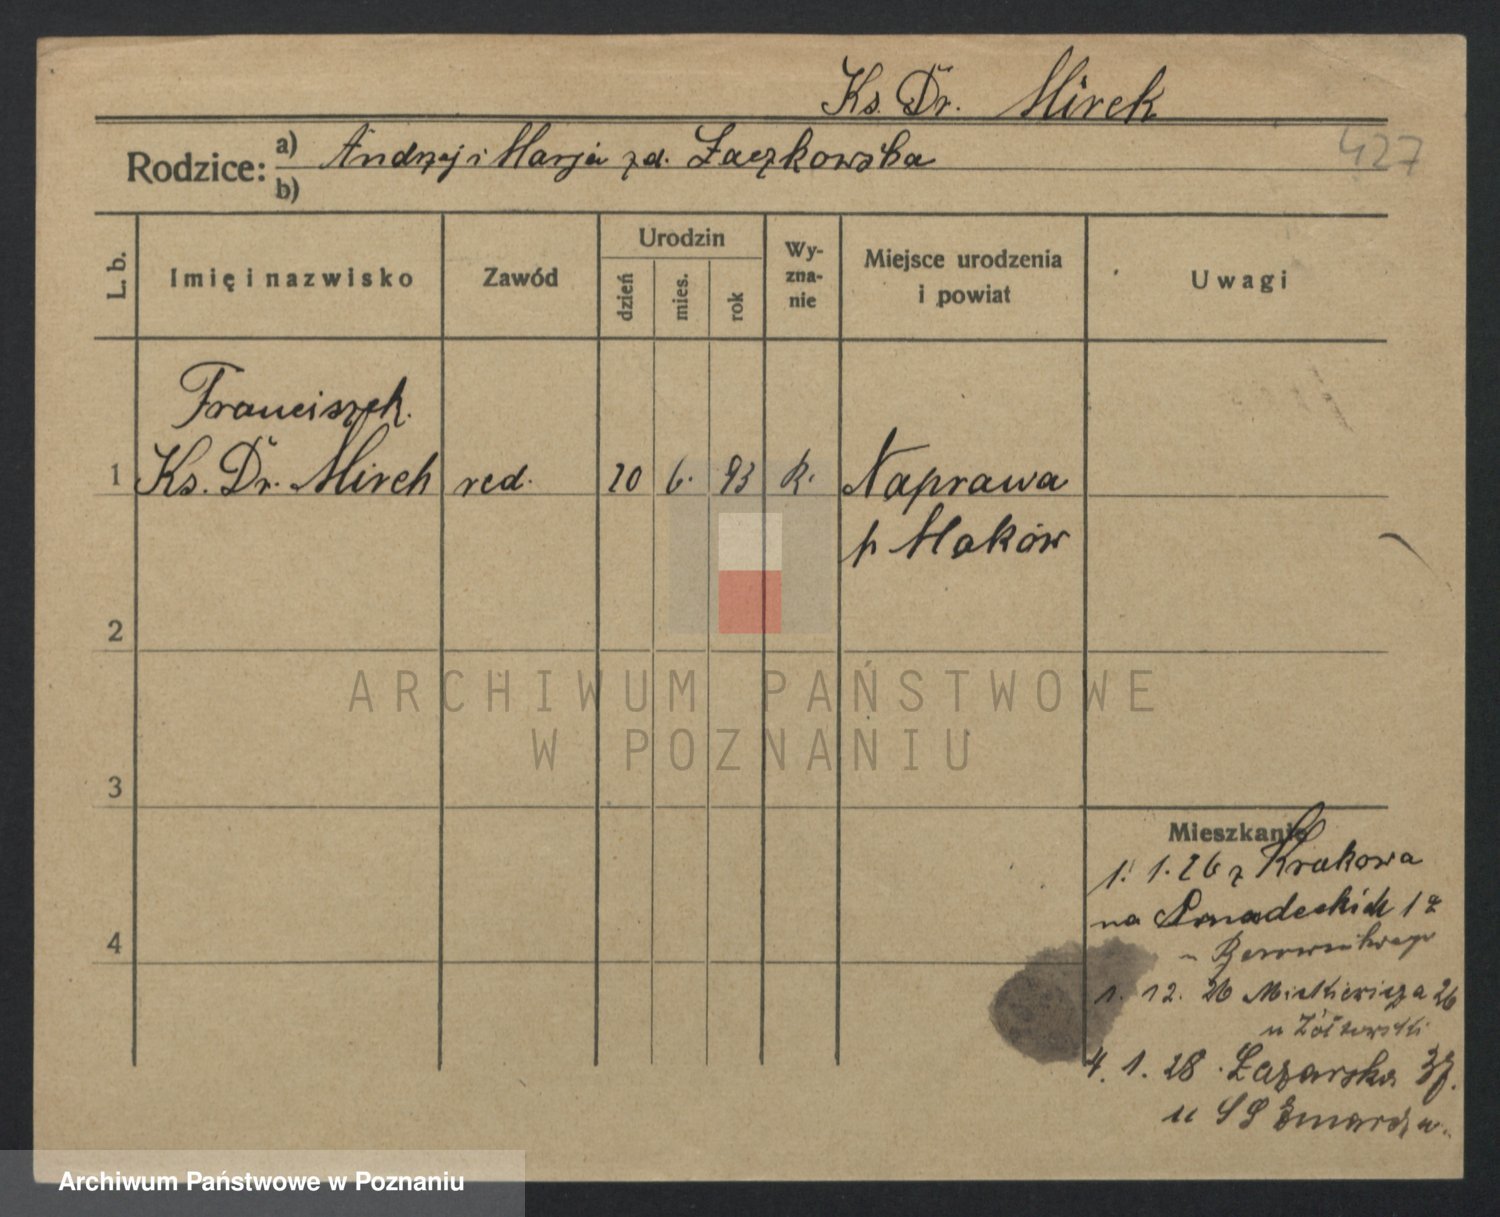 Ks. Dr. Mirek
427
Rodzice: a) Andrzej i Marja zd. Łaczkowska
b)
L. b. Imię i nazwisko Zawód Urodzin dzień mies. rok Wy-zna-nie Miejsce urodzenia i powiat Uwagi
Franciszek
1 Ks. Dr. Mirek red. 20 6. 93 R. Naprawa
p Maków
2
3
4
Mieszkanie
1. 1. 26 z Krakowa
na 12
1. 12. 26 Mickiewicza 26
u Żółtowski
4. 1. 28. Łazarska
u SS
ARCHIWUM PAŃSTWOWE
W POZNANIU
Archiwum Państwowe w Poznaniu